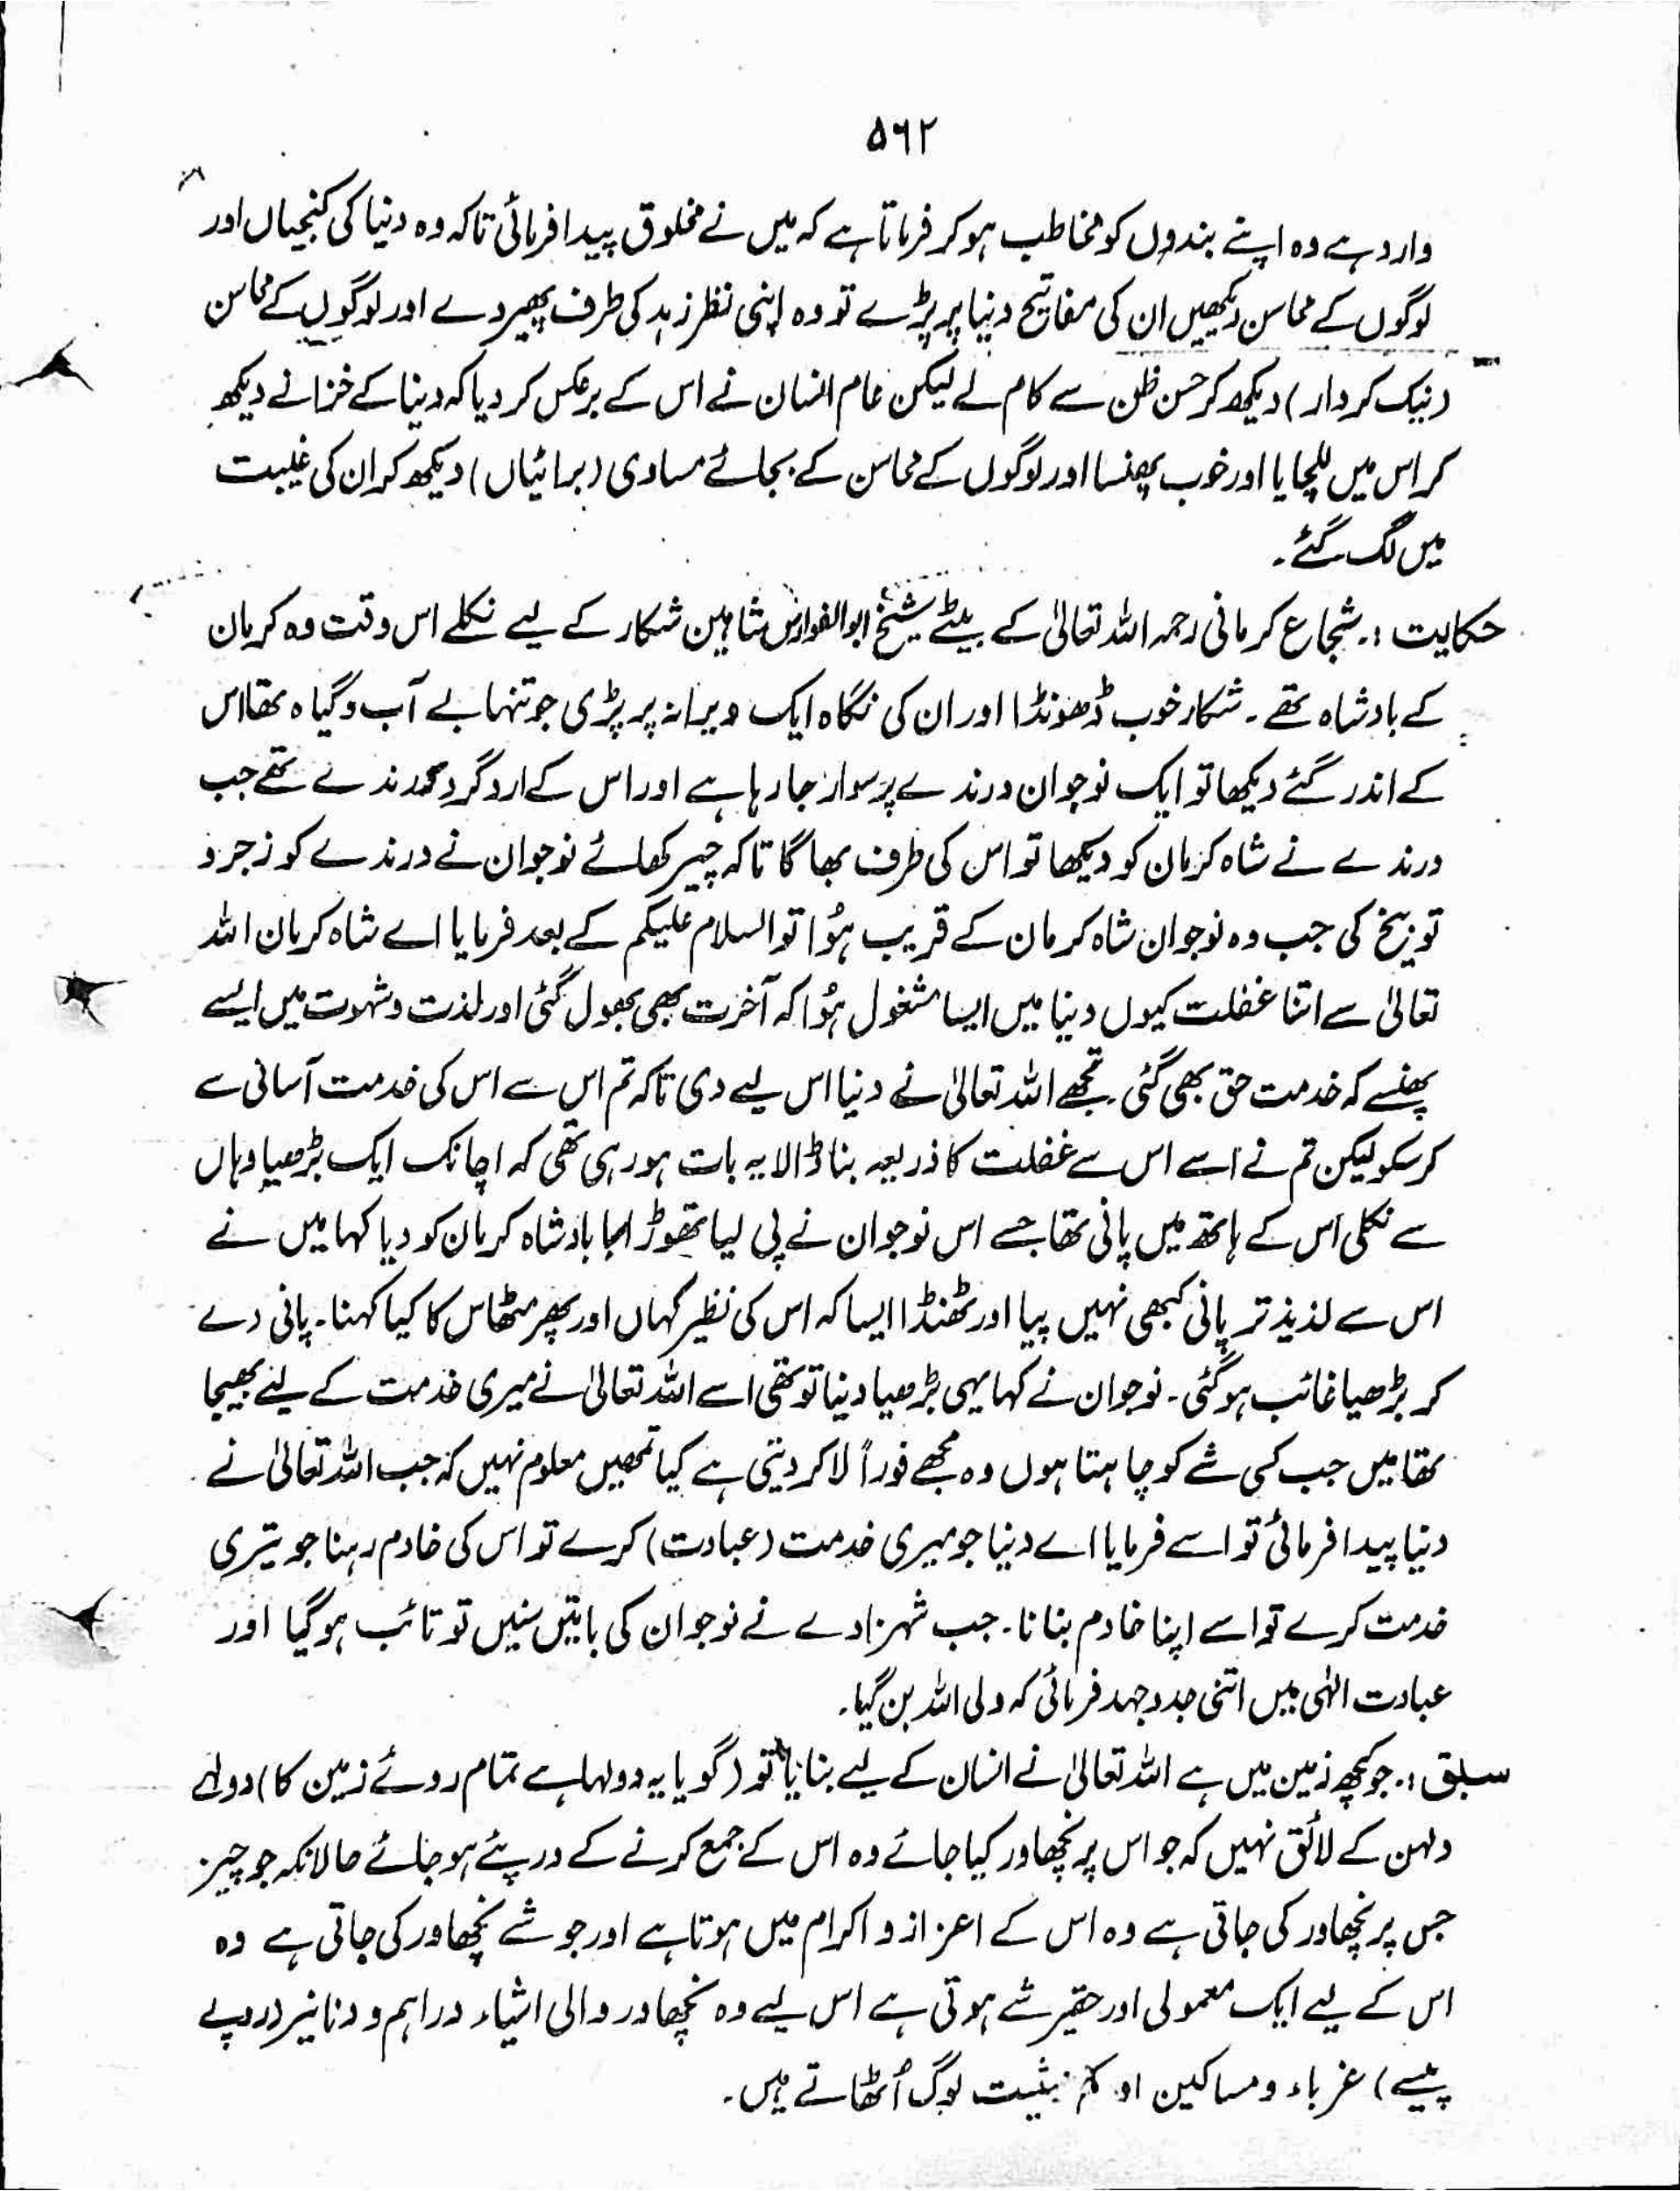 ۵۶۲
وارد ہے وہ اپنے بندوں کو مخاطب ہو کر فرماتا ہے کہ میں نے مخلوق پیدا فرمائی تاکہ وہ دنیا کی کنجیاں اور
لوگوں کے محاسن دیکھیں ان کی مفاتیح دنیا پر پڑے تو وہ اپنی نظر زہد کی طرف پھیر دے اور لوگوں کے محاسن
(نیک کردار) دیکھ کر حسن ظن سے کام لے لیکن عام انسان نے اس کے برعکس کر دیا کہ دنیا کے خزانے دیکھ
کر اس میں للچایا اور خوب پھنسا اور لوگوں کے محاسن کے بجائے مساوی (برائیاں) دیکھ کر ان کی غیبت
میں لگ گئے۔
حکایت :۔ شجاع کرمانی رحمہ اللہ تعالیٰ کے بیٹے شیخ ابوالفوارس شاہین شکار کے لیے نکلے اس وقت وہ کرمان
کے بادشاہ تھے۔ شکار خوب ڈھونڈا اور ان کی نگاہ ایک ویرانہ پر پڑی جو تنہا بے آب و گیاہ تھا اس
کے اندر گئے دیکھا تو ایک نوجوان درندے پر سوار جا رہا ہے اور اس کے اردگرد درندے تھے جب
درندے نے شاہ کرمان کو دیکھا تو اس کی طرف بھاگا تاکہ چیر کھائے نوجوان نے درندے کو زجر و
توبیخ کی جب وہ نوجوان شاہ کرمان کے قریب ہُوا تو السلام علیکم کے بعد فرمایا اے شاہ کرمان اللہ
تعالیٰ سے اتنا غفلت کیوں دنیا میں ایسا مشغول ہُوا کہ آخرت بھی بھول گئی اور لذت و شہوت میں ایسے
پھنسے کہ خدمت حق بھی گئی۔ تجھے اللہ تعالیٰ نے دنیا اس لیے دی تاکہ تم اس سے اس کی خدمت آسانی سے
کر سکو لیکن تم نے اسے اس سے غفلت کا ذریعہ بنا ڈالا یہ بات ہو رہی تھی کہ اچانک ایک بڑھیا وہاں
سے نکلی اس کے ہاتھ میں پانی تھا جسے اس نوجوان نے پی لیا تھوڑا بادشاہ کرمان کو دیا کہا میں نے
اس سے لذیذ تر پانی کبھی نہیں پیا اور ٹھنڈا ایسا کہ اس کی نظیر کہاں اور پھر مٹھاس کا کیا کہنا۔ پانی دے
کر بڑھیا غائب ہو گئی۔ نوجوان نے کہا یہی بڑھیا دنیا تو تھی اسے اللہ تعالیٰ نے میری خدمت کے لیئے بھیجا
تھا میں جب کسی شے کو چاہتا ہوں وہ مجھے فوراً لا کر دیتی ہے کیا تمھیں معلوم نہیں کہ جب اللہ تعالیٰ نے
دنیا پیدا فرمائی تو اسے فرمایا اے دنیا جو میری خدمت (عبادت) کرے تو اس کی خادم رہنا جو تیری
خدمت کرے تو اسے اپنا خادم بنانا۔ جب شہزادے نے نوجوان کی باتیں سنیں تو تائب ہو گیا اور
عبادت الٰہی میں اتنی جدوجہد فرمائی کہ ولی اللہ بن گیا۔
سبق :۔ جو کچھ زمین میں ہے اللہ تعالیٰ نے انسان کے لیے بنایا تو (گویا یہ دولہا ہے تمام روئے زمین کا) دولہے
دلہن کے لائق نہیں کہ جو اس پر نچھاور کیا جائے وہ اس کے جمع کرنے کے درپئے ہو جائے حالانکہ جو چیز
جس پر نچھاور کی جاتی ہے وہ اس کے اعزاز و اکرام میں ہوتا ہے اور جو شے نچھاور کی جاتی ہے وہ
اس کے لیے ایک معمولی اور حقیر شے ہوتی ہے اس لیے وہ نچھاور والی اشیاء دراہم و دنانیر (روپے
پیسے) غرباء و مساکین لوگ اُٹھاتے ہیں۔